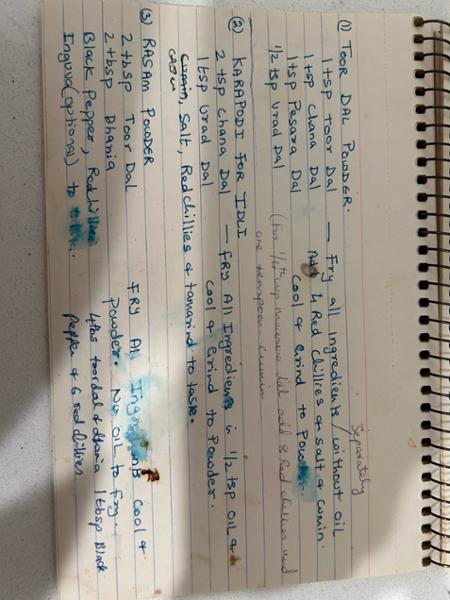 Separately
(1) TOOR DAL POWDER.
1 tsp TOOR Dal — Fry all Ingredients without oil
1 tsp Chana Dal Add 4 Red chillies & salt & cumin.
1 tsp Pesara Dal Cool & Grind to Powder.
1/2 tsp Urad Dal (For 1/4th cup measure dal add 8 Red chillies and
one teaspoon cumin
(2) KARAPODI FOR IDLI
2 tsp Chana Dal — FRY All Ingredients in 1/2 tsp OIL &
1 tsp Urad Dal Cool & Grind to Powder.
Cumin, Salt, Red chillies & tamarind to taste.
(3) RASAM POWDER
2 tbsp Toor Dal FRY All Ingredients cool &
2 tbsp Dhania Powder. No OIL to fry.
Black Pepper, Red chillies 4 tbs toor dal & dhania 1 tbsp Black
Inguva (optional) to pepper & 6 red chillies